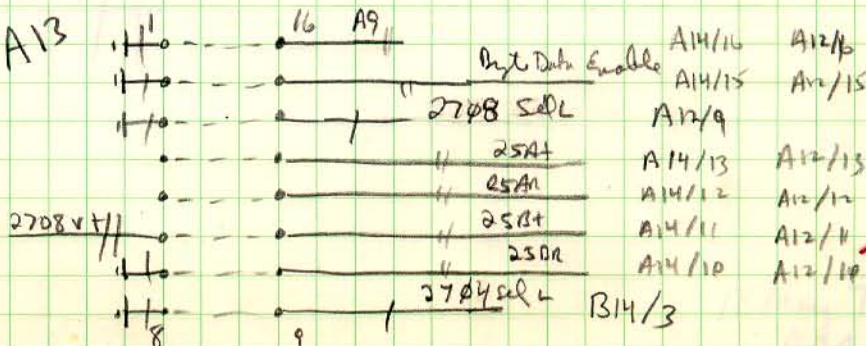 A13
1 16 A9 A14/16 A12/16
Byt Data Enable A14/15 A12/15
27φ8 Sel L A12/9
25A+ A14/13 A12/13
25AR A14/12 A12/12
2708 V+ 25B+ A14/11 A12/11
25BR A14/10 A12/10
27φ4 Sel L B14/3
8 9